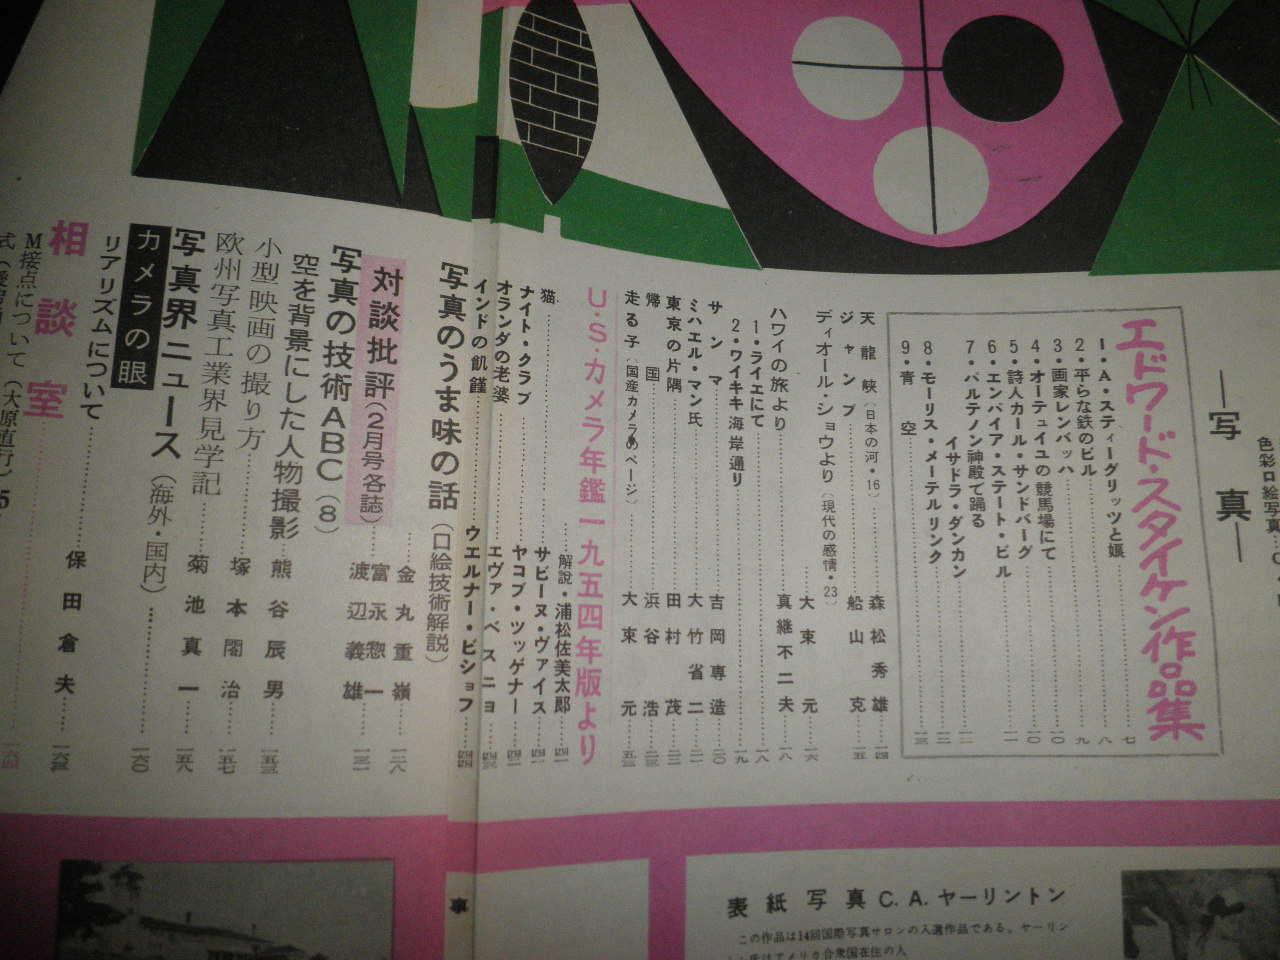 色彩口絵写真
―写真―
エドワード・スタイケン作品集
1・A・スティーグリッツと娘……七
2・平らな鉄のビル……八
3・画家レンバッハ……九
4・オーテュイユの競馬場にて……一〇
5・詩人カール・サンドバーグ……一〇
6・エンパイア・ステート・ビル……一一
7・パルテノン神殿で踊る
イサドラ・ダンカン……一二
8・モーリス・メーテルリンク……一二
9・青空……一三
天龍峡(日本の河・16)……森松秀雄……一四
ジャンプ……船山克……一五
ディオール・ショウより(現代の感情・23)……大東元……一六
ハワイの旅より……真継不二夫……一八
1・ライエにて……一八
2・ワイキキ海岸通り……一九
サンマ……吉岡専造……二〇
ミハエル・マン氏……大竹省二……二一
東京の片隅……田村茂……二二
帰国……浜谷浩……二三
走る子(国産カメラのページ)……大東元……五三
U・S・カメラ年鑑一九五四年版より
……解説・浦松佐美太郎……四一
猫……サビーヌ・ヴァイス……四一
ナイト・クラブ……ヤコブ・ツッゲナー……四二
オランダの老婆……エヴァ・ベスニョ……四三
インドの飢饉……ウエルナー・ビショフ……四四
写真のうま味の話(口絵技術解説)
対談批評(2月号各誌)……金丸重嶺……一二八
富永惣一
渡辺義雄……一三一
写真の技術ABC(8)
空を背景にした人物撮影……熊谷辰男……一五三
小型映画の撮り方……塚本閤治……一五七
欧州写真工業界見学記……菊池真一……一五八
写真界ニュース(海外・国内)……一六〇
カメラの眼
リアリズムについて……保田倉夫……一六三
相談室……一六四
M接点について(大原直行)
表紙写真 C.A.ヤーリントン
この作品は14回国際写真サロンの入選作品である。ヤーリン
トン氏はアメリカ合衆国在住の人